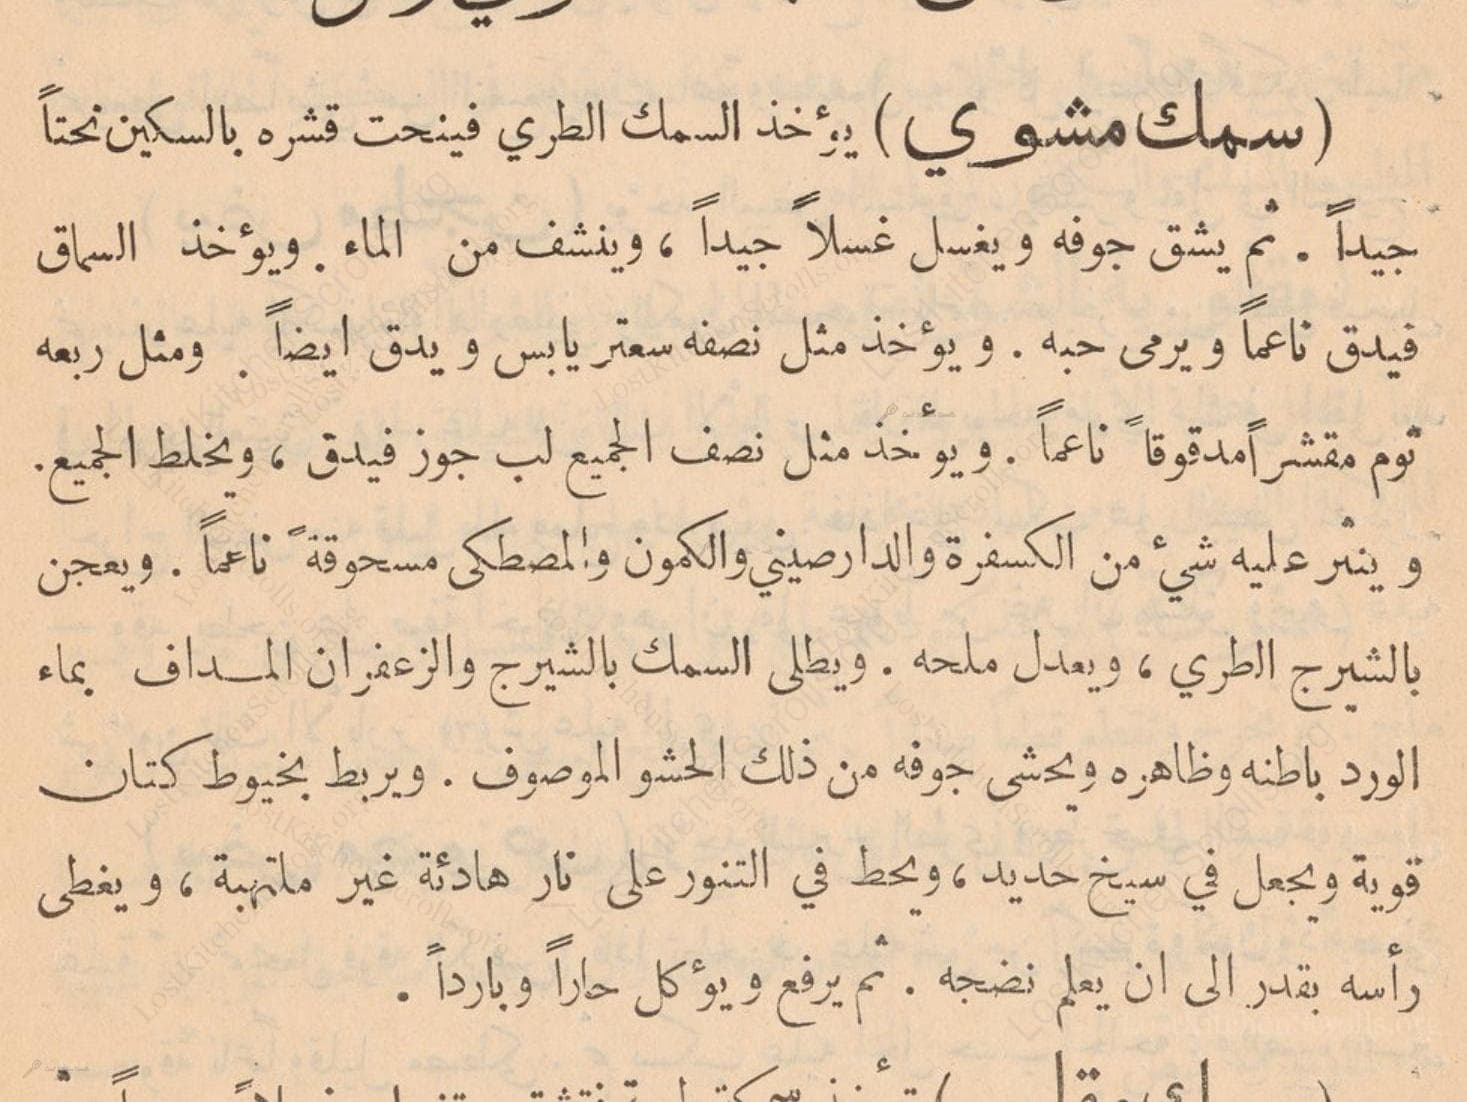 (سمك مشوي) يؤخذ السمك الطري فينحت قشره بالسكين نحتاً
جيداً . ثم يشق جوفه ويغسل غسلاً جيداً ، وينشف من الماء . ويؤخذ السماق
فيدق ناعماً ويرمى حبه . ويؤخذ مثل نصفه سعتر يابس ويدق ايضاً . ومثل ربعه
ثوم مقشراً مدقوقاً ناعماً . ويؤخذ مثل نصف الجميع لب جوز فيدق ، ويخلط الجميع .
وينثر عليه شيء من الكسفرة والدارصيني والكمون والمصطكى مسحوقة ناعماً . ويعجن
بالشيرج الطري ، ويعدل ملحه . ويطلى السمك بالشيرج والزعفران المداف بماء
الورد باطنه وظاهره ويحشى جوفه من ذلك الحشو الموصوف . ويربط بخيوط كتان
قوية ويجعل في سيخ حديد ، ويحط في التنور على نار هادئة غير ملتهبة ، ويغطى
رأسه بقدر الى ان يعلم نضجه . ثم يرفع ويؤكل حاراً وبارداً .